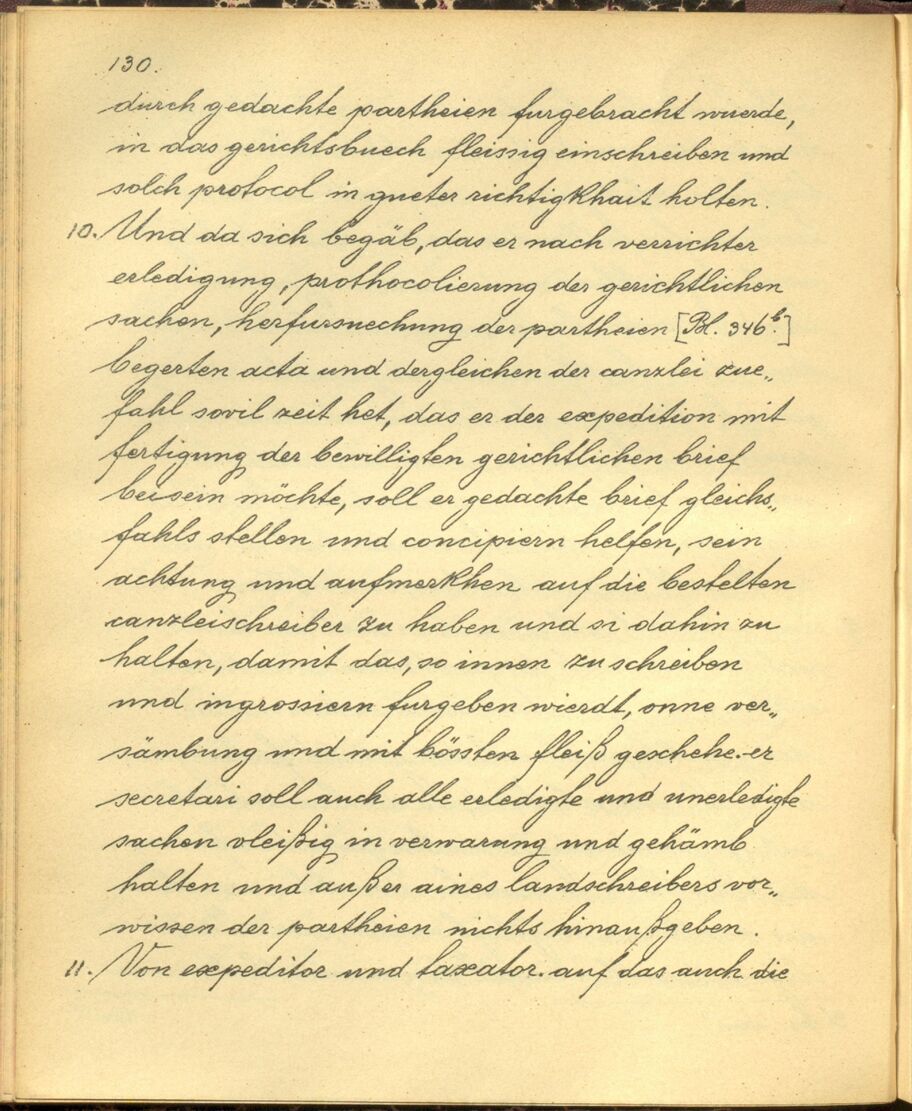 130.
durch gedachte partheien furgebracht wuerde,
in das gerichtsbuech fleissig einschreiben und
solch protocol in gueter richtigkhait holten.
10. Und da sich begäb, das er nach verrichter
erledigung, prothocolierung der gerichtlichen
sachen, herfursuechung der partheien [Bl. 346b.]
begerten acta und dergleichen der canzlei zue„
fahl sovil zeit het, das er der expedition mit
fertigung der bewilligten gerichtlichen brief
beisein möchte, soll er gedachte brief gleichs„
fahls stellen und concipiern helfen, sein
achtung und aufmerkhen auf die bestelten
canzleischreiber zu haben und si dahin zu
halten, damit das, so innen zu schreiben
und ingrossiern furgeben wierdt, onne ver„
sämbung und mit bössten fleiß geschehe.-er
secretari soll auch alle erledigte und unerledigte
sachen vleißig in verwarung und gehämb
halten und außer aines landschreibers vor„
wissen der partheien nichts hinaußgeben.
11. Von expeditor und taxator. auf das auch die